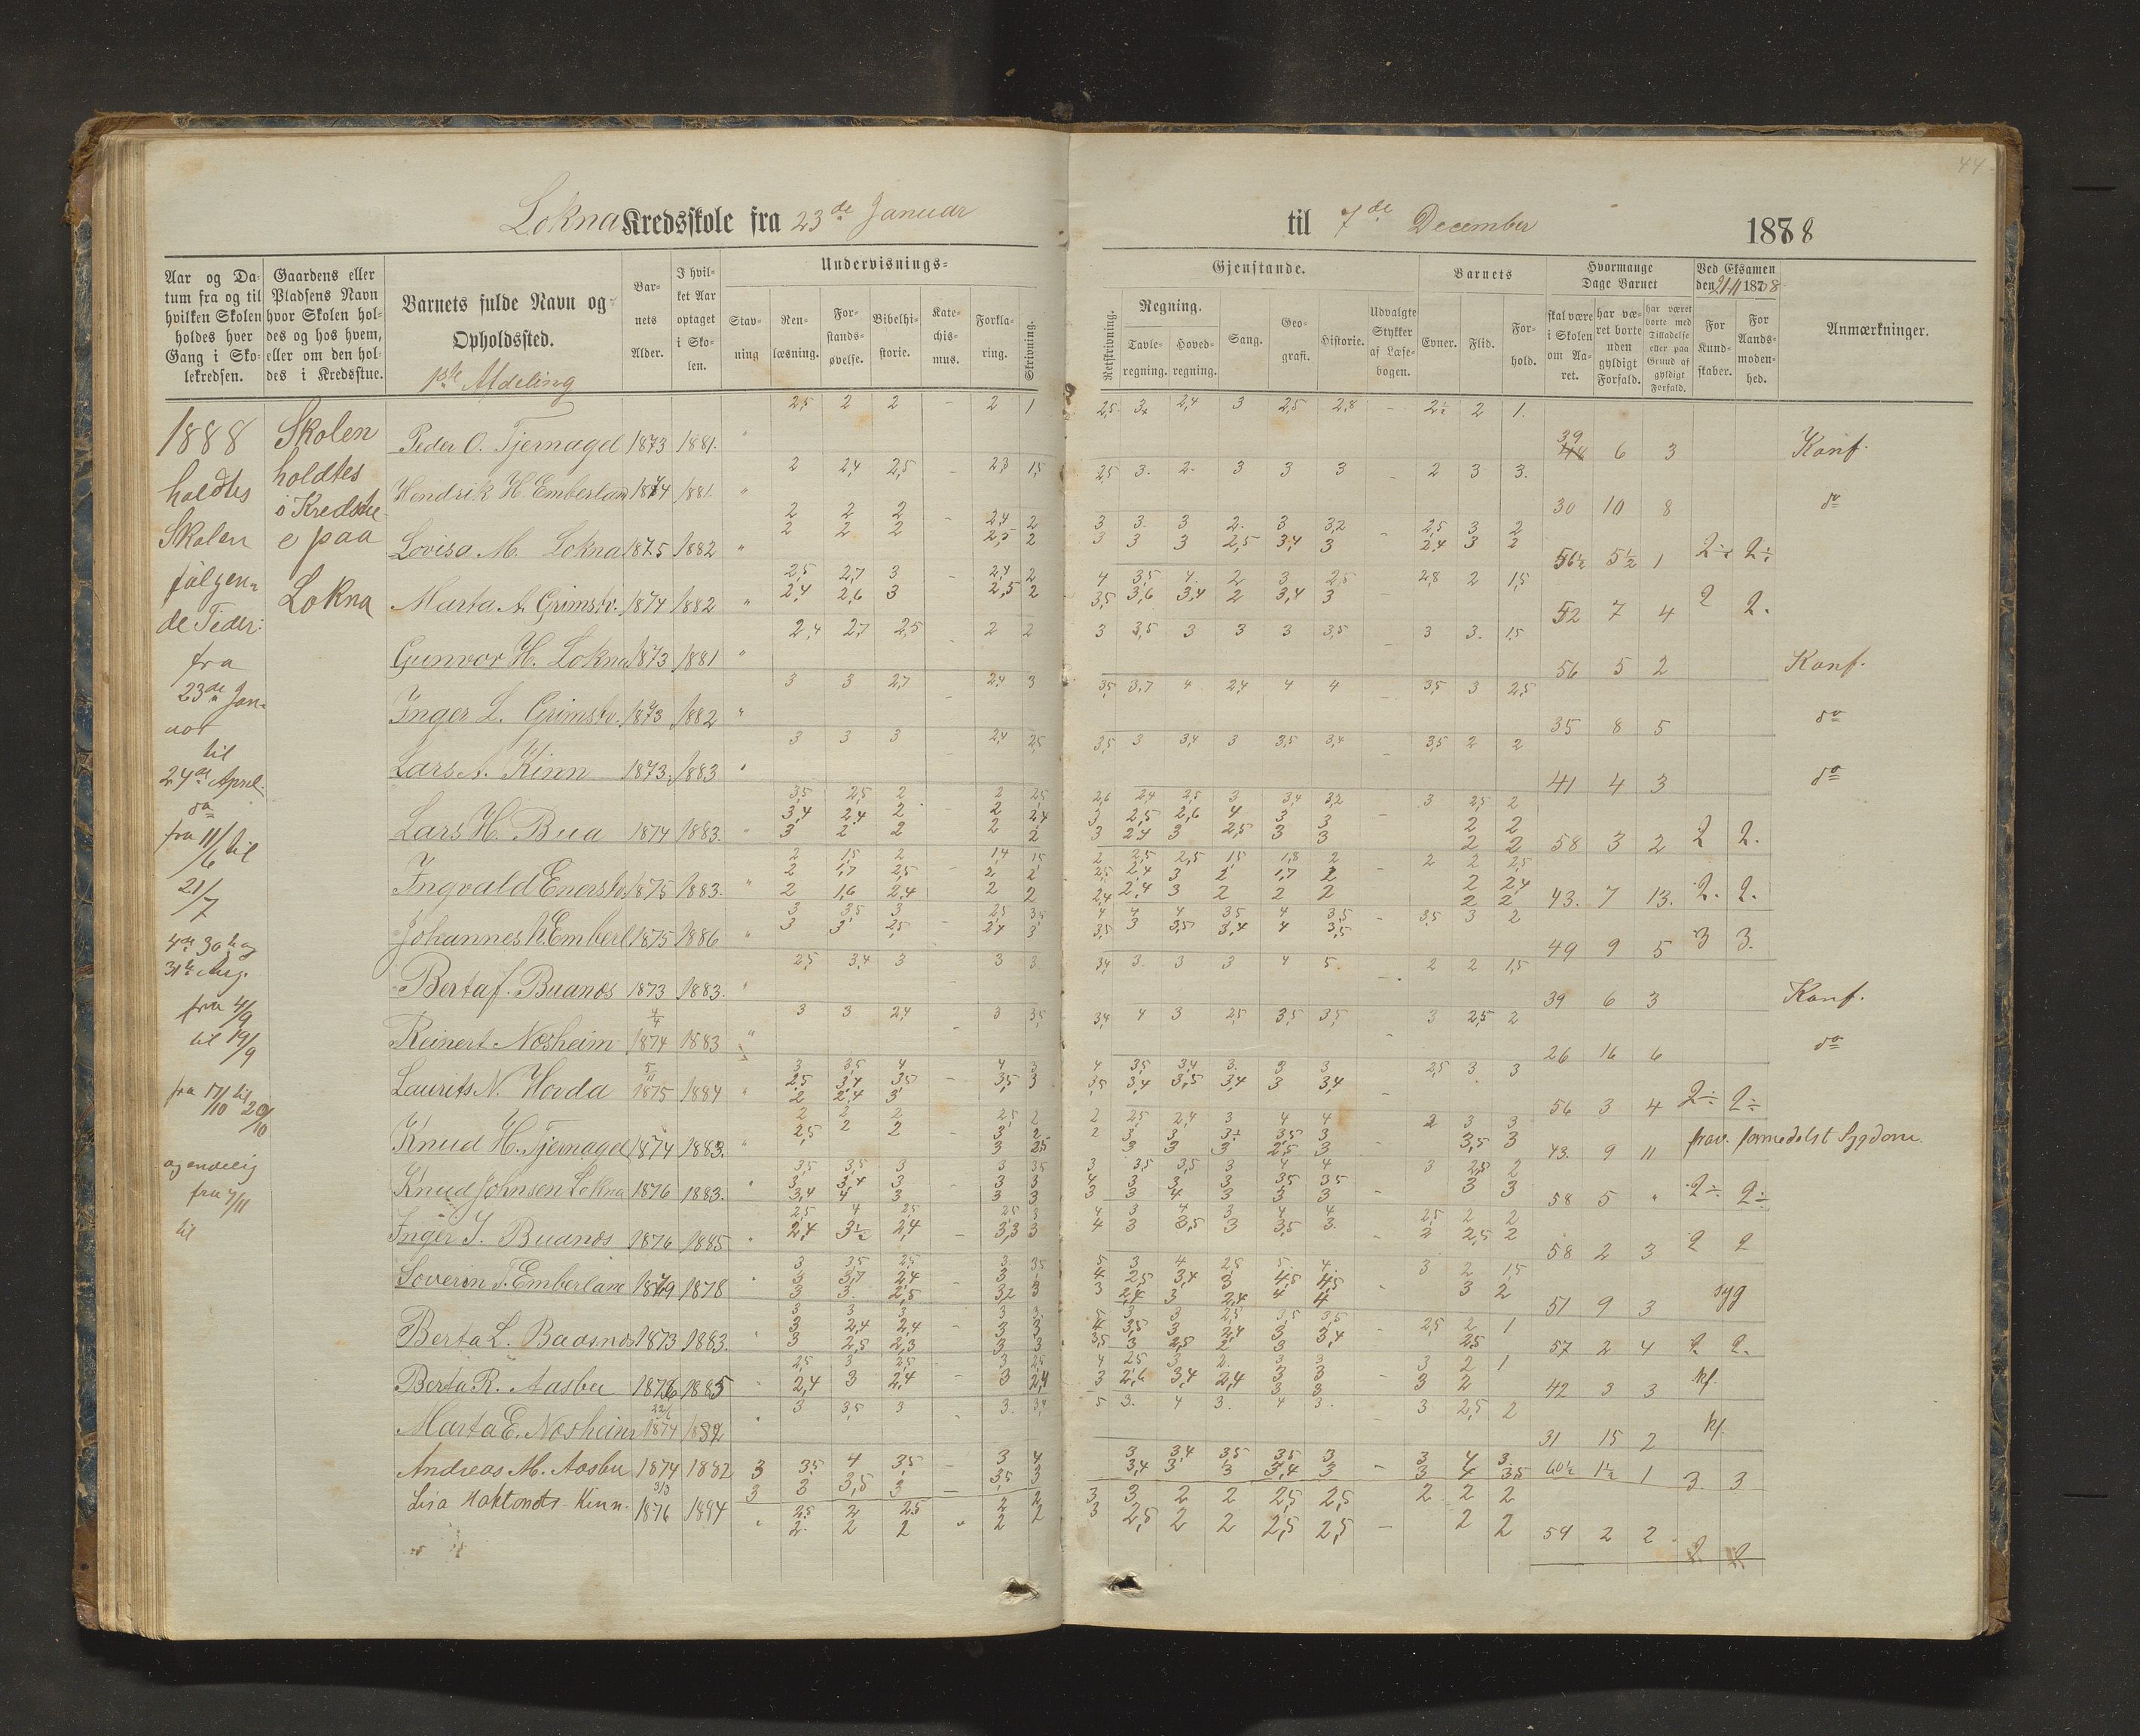 44
Lokna Kredsskole fra 23de Januar til 7de December 1888
Aar og Datum fra og til hvilken Skolen holdes hver Gang i Skolekredsen.
Gaardens eller Pladsens Navn hvor Skolen holdes og hos hvem, eller om den holdes i Kredsstue.
Barnets fulde Navn og Opholdssted.
1ste Afdeling
Barnets Alder.
I hvilket Aar optaget i Skolen.
Undervisnings-
Stavning
Renlæsning.
Forstandsøvelse.
Bibelhistorie.
Katechismus.
Forklaring.
Skrivning.
Gjenstande.
Retskrivning.
Regning.
Tavleregning.
Hovedregning.
Sang.
Geografi.
Historie.
Udvalgte Stykker af Læsebogen.
Barnets
Evner.
Flid.
Forhold.
Hvormange Dage Barnet
skal være i Skolen om Aaret.
har været borte uden gyldigt Forfald.
har været borte med Tilladelse eller paa Grund af gyldigt Forfald.
Ved Eksamen den 21-11 1888
For Kundskaber.
For Aandsmodenhed.
Anmærkninger.
1888
holdtes
Skolen
følgen-
de Tider:
fra
23de Jan-
uar
til
24de April.
do
fra 11/6 til
21/7
31te Aug.
fra 4/9
til 19/9
fra 17/10 til 20/10
og endelig
fra 7/11
til
Skolen
holdtes
i Kredstu-
e paa
Lokna
Peder O. Tjernagel 1873 1881. " 2,5 2 2 - 2 1 2,5 3 2,4 3 2,5 2,8 - 2½ 2 1. 39 6 3 Konf.
Hendrik H. Emberlan 1874 1881. " 2 2,4 2,5 - 2,3 1,5 2,5 3. 2. 3 3 3 2 3 3. 30 10 8 do
Lovisa M. Lokna 1875 1882 " 2 2 2 - 2,4 2 3 3. 3 2. 3 3,2 - 2,5 3 2 56½ 5½ 1 2÷ 2÷
2 2 2 2,5 2 3 3 3 2,5 3,4 3 2,4 3 2
Marta A. Grimstv. 1874 1882 " 2,5 2,7 3 - 2,4 2 4 3,5 4. 2 3 2,5 2,8 2 1,5 52 7 4 2 2.
2,4 2,6 3 2,5 2 3,5 3,6 3,4 2 3,4 3
Gunvor H. Lokna 1873 1881 " 2,4 2,7 2,5 - 2 2 3 3,5 3 3 3 3,5 - 3 3. 1,5 56 5 2 Konf.
Inger L. Grimstv. 1873 1882 " 3 3 2,7 2,4 3 3,5 3,7 4 2,4 4 4 - 3,5 3 2,5 35 8 5 do
Lars A. Kinn 1873. 1883 " 3 3 3 2,4 2,5 3,5 3 3,4 3 3,5 3,4 - 3,5 2 2 41 4 3 do
Lars H. Bua 1874 1883. " 3,5 2,5 2 2 2,5 2,6 2,4 2,5 3 3,4 3,2 - 3 2,5 2 58 3 2 2 2.
3,4 2,4 2 2 2,4 3 2,5 2,6 4 3 3 2 2
3 2 2 2 2 3 2,4 3 2,5 3 3 2 2
Ingvald Enerstv. 1875 1883. " 2 1,5 2 - 1,4 1,5 2 2,5 2,5 1,5 1,8 2 - 2 2 2,5 43. 7 13. 2. 2.
2 1,7 2,5 2 2 2,5 2,4 3 2 1,7 2 2 2,4
2 1,6 2,4 2 2 2,4 2,4 3 2 2 2 2 2
Johannes H. Emberl 1875 1886 " 3 3,5 3 - 2,5 3,5 4 4 4 3,5 4 3,5 - 3,5 3 2 49 9 5 3 3.
3 3 2,5 2,4 3 3,5 3 3,5 3,4 4 3,5
Berta J. Buanæs 1873 1883. " 2,5 3,4 3 3 3 3,4 3. 3 3 4 5. - 2 2 1,5 39 6 3 Konf.
Reinert Næsheim 4/4 1874 1883 " 3 3 2,4 - 3 3,5 3,4 4 3 2,5 3,5 3,5 3 2,5 2 26 16 6 do
Laurits N. Hovda 5/11 1875 1884 " 3 3,5 4 - 4 3 4 3,5 3,4 3. 3 3 2,5 3 3 56 3 4 2÷ 2÷
2,5 3,4 3,5 3,5 3 3,5 3,4 3,5 3,4 3 3,4
2 2,4 3
Knud H. Tjernagel 1874 1883. " 2 2 2 2,5 2 2 2,5 2,4 3 4 4 2 3 3 43. 9 11 frav. formedelst Sygdom.
2,5 2 2 3 2 2 3 3 3½ 3,5 3 3,5 3
3 2,5 3 3 3 2,5 3
Knud Johnsen Lokna 1876 1883. " 3,5 3,5 3 3 3,5 3 3,5 3,5 3 4 4 3 2,5 2 58 5 " 2÷ 2÷
3 3,4 3 3 3 4 3 3 3 3,5 3,5 3 3
3,4 4 3 3 3 3 3 4 3 3 3
Inger J. Buanæs 1876 1885 " 2,5 4 2,5 2,5 3 4 3 4 3 4 4 2,5 2 2 58 2 3 2 2
2,4 3½ 2,4 3,3 3 4 3 3,5 3 3,5 3. 2 2,5 2
Soverin T. Emberlan 1879 1878 " 3 3,5 2,5 3 3,5 5 3 4 2,5 5. 4. 3 2 1,5 51 9 3 syg
3 3,7 2,4 3 3 4 2,5 3,4 3 4,5 4,5 3 2
3 3. 2,5 3,2 3 3 2,4 3 2,4 4 4
Berta L. Baasnæs 1873 1883. " 3 3 3 3 3. 5 3 3 2,5 3,5 3,5 2,5 2 1 57 2 4 2 2.
3 2,4 2,4 3 3 4 3,5 3 2,4 3 3,4 2,5
3 2,5 2,3 3 3 3,5 3 2,5 2 3
Berta R. Aasbu 1876 1885 " 2,5 3 2,5 3 2,5 4 2,5 3 2. 3 3 3 2 1 42 3 3 kf.
2,4 3 2,4 - 3 2,4 3 2,6 3,4 2,4 3 3 3 2
Marta E. Næsheim 22/6 1874 1882 " 3 3,5 3 3. 3,4 5 3. 4 3. 4 3. 3 2,5 2 31 15 2 kf.
Andreas M. Aasbu 1874 1882 3 3,5 4 3,5 3 4 3 3,4 3,5 3,5 3 3 4 3 60½ 1½ 1 3. 3
3 3 3,5 3 - 3,5 3 3,4 3 3 3,4 3 - 3 4 3,5
Lisa Kinn. 3/3 1876 1884 " 2,5 2 2,5 2 2 3 3 2 2 2,5 2,5 2 2 2 54 2 2 2 2
2 2 2 " 2 2 3 2,5 2 2 2,5 2,5 - 2 2